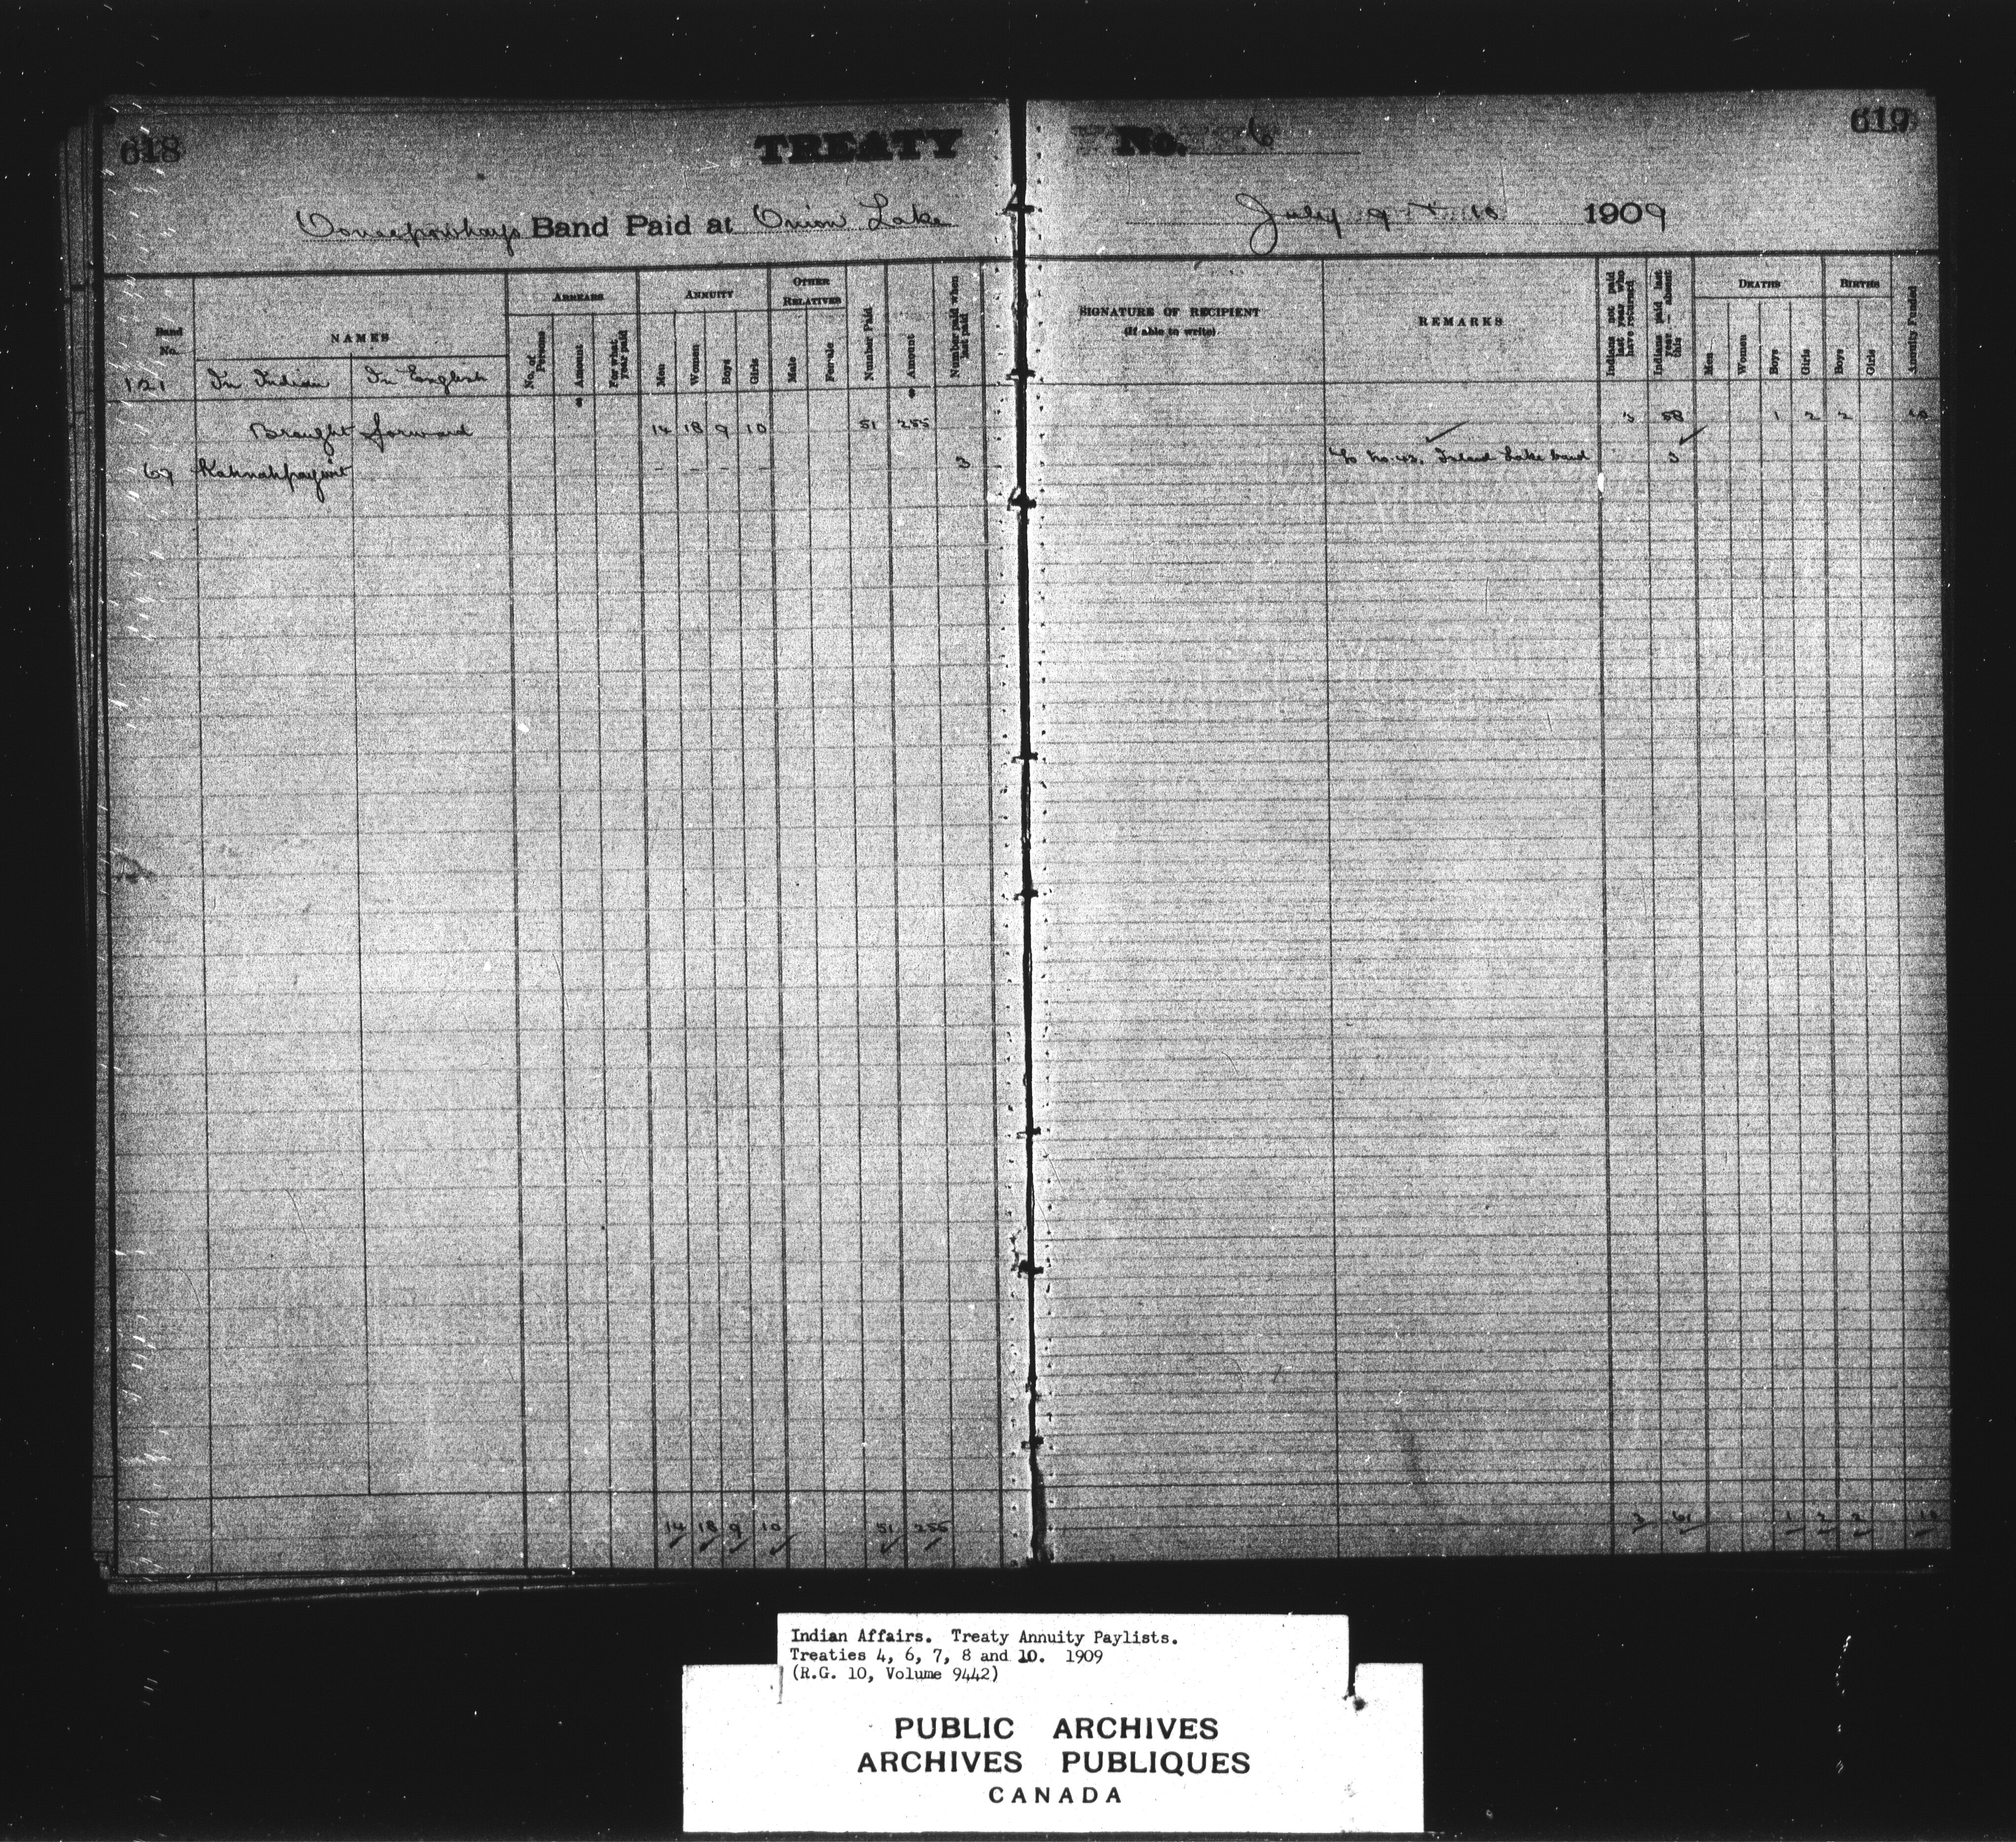 618
TREATY No. 6
619
Ooneepowhayo Band Paid at Onion Lake July 9 + 10 1909
Band No.
NAMES
ARREARS
ANNUITY
OTHER RELATIVES
Number Paid
Amount
Number paid when last paid
SIGNATURE OF RECIPIENT
(if able to write)
REMARKS
Indians not paid last year who have returned
Indians paid last year – absent this
DEATHS
BIRTHS
Annuity Funded
No. of Persons
Amount
For what year paid
Men
Women
Boys
Girls
Male
Female
Men
Women
Boys
Girls
Boys
Girls
121 In Indian In English
Brought forward 14 18 9 10 51 255 3 58 1 2 2 10
67 Kahnahpayoint – – – – 3 No. 42. Island Lake band 3
14 18 9 10 51 255 3 61 1 2 2 10
Indian Affairs. Treaty Annuity Paylists.
Treaties 4, 6, 7, 8 and 10. 1909
(R.G. 10, Volume 9442)
PUBLIC ARCHIVES
ARCHIVES PUBLIQUES
CANADA